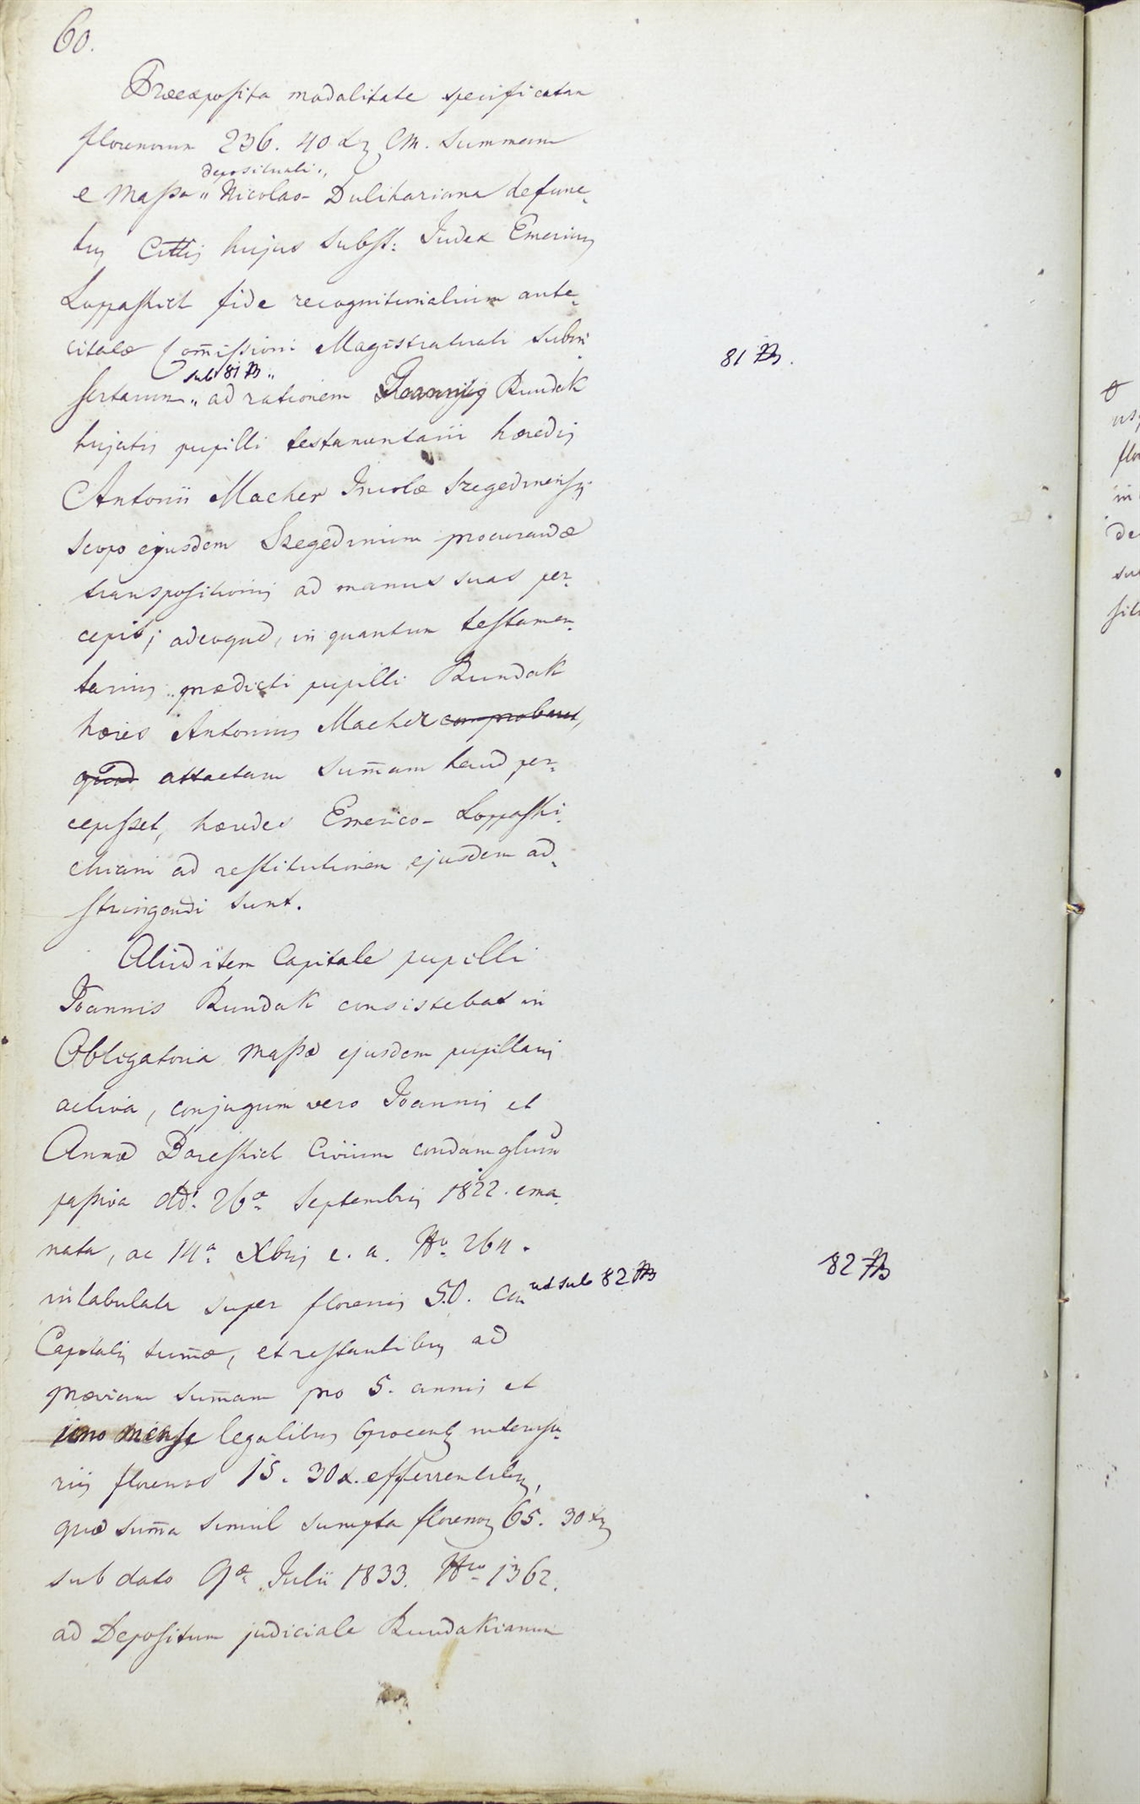 60.
Præexposita modalitate specificatam
florenorum 236. 40 xr CM. Summam
deposituali
e Massa Nicolao- Dulihariana defunc-
tus Cittis hujus Subst: Judex Emericus
Loppassich fide recognitionalium ante-
citatæ Comissioni Magistratuali subin
81 B.
sub 81 B.
sertarum ad rationem Joannis Rundak
hujatis pupilli testamentarii hæredis
Antonii Macher Incolæ Szegedinensis
scopo ejusdem Szegedinum procurandæ
transpositionis ad manus suas per-
cepit; adeoque, in quantum testamen-
tarius prædicti pupilli Rundak
hæres Antonius Macher comprobaret,
quod attactam sumam haud per-
cepisset, hæredes Emerico- Loppassi-
chiani ad restitutionem ejusdem ad-
stringendi sunt.
Aliud item Capitale pupilli
Joannis Rundak consistebat in
Obligatoria Massæ ejusdem pupillaris
activa, conjugum vero Joannis et
Annæ Boreskich Civium condam
passiva dto. 26a Septembris 1822. ema-
nata, ac 14a Xbris e. a. No. 264.
intabulata super florenis 50. Cm ut sub 82 B
82 B
Capitalis sumæ, et restantibus ad
præviam sumam pro 5. annis et
uno mense legalibus 6procent interusu-
riis florenos 15. 30x. efferrentibus,
quæ suma simul sumpta florenos 65. 30 xr
sub dato 9a Julii 1833. Nro 1362.
ad Depositum judiciale Rundakianum